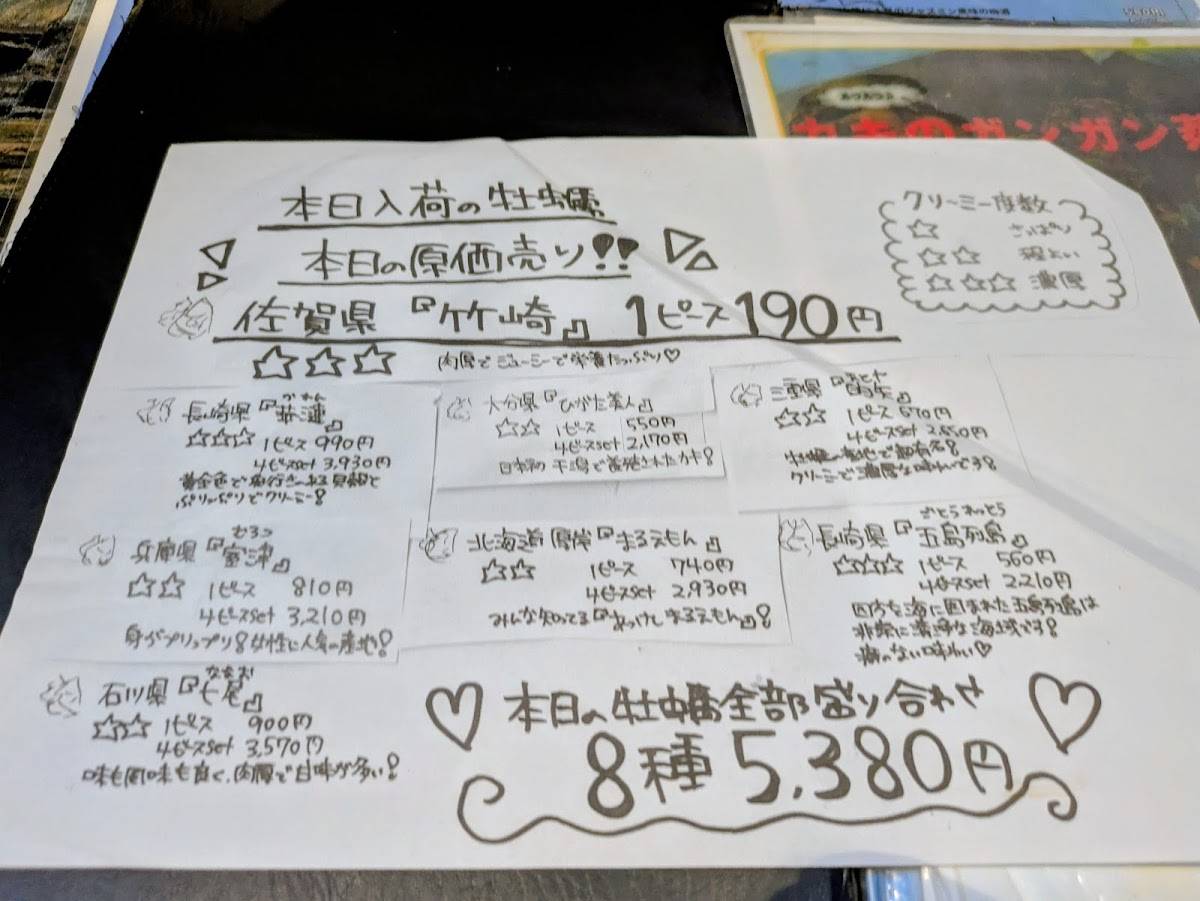 本日入荷の牡蠣
本日の原価売り!!
佐賀県『竹崎』 1ピース190円
☆☆☆ 肉厚でジューシーで栄養たっぷり♡
クリーミー度数
☆ さっぱり
☆☆ 程よい
☆☆☆ 濃厚
かれん
長崎県『華漣』
☆☆☆ 1ピース 990円
4ピースset 3,930円
黄金色で奥行きのある貝殻と
ぷりっぷりでクリーミー!
大分県『ひがた美人』
☆☆ 1ピース 550円
4ピースset 2,170円
日本初 干潟で養殖されたカキ!
三重県
☆☆ 1ピース 670円
4ピースset 2,650円
牡蠣の産地で超有名!
クリーミーで濃厚な味わいです!
むろつ
兵庫県『室津』
☆☆ 1ピース 810円
4ピースset 3,210円
身がプリップリ!女性に人気の産地!
北海道厚岸『まるえもん』
☆☆ 1ピース 740円
4ピースset 2,930円
みんな知ってる『あっけしまるえもん』!
ごとうれっとう
長崎県『五島列島』
☆☆☆ 1ピース 560円
4ピースset 2,210円
四方を海に囲まれた五島列島は
非常に清浄な海域です!
癖のない味わい♡
ななお
石川県『七尾』
☆☆ 1ピース 900円
4ピースset 3,570円
味も風味も良く、肉厚で甘味が多い!
本日の牡蠣全部盛り合わせ
8種 5,380円
カキのガンガン